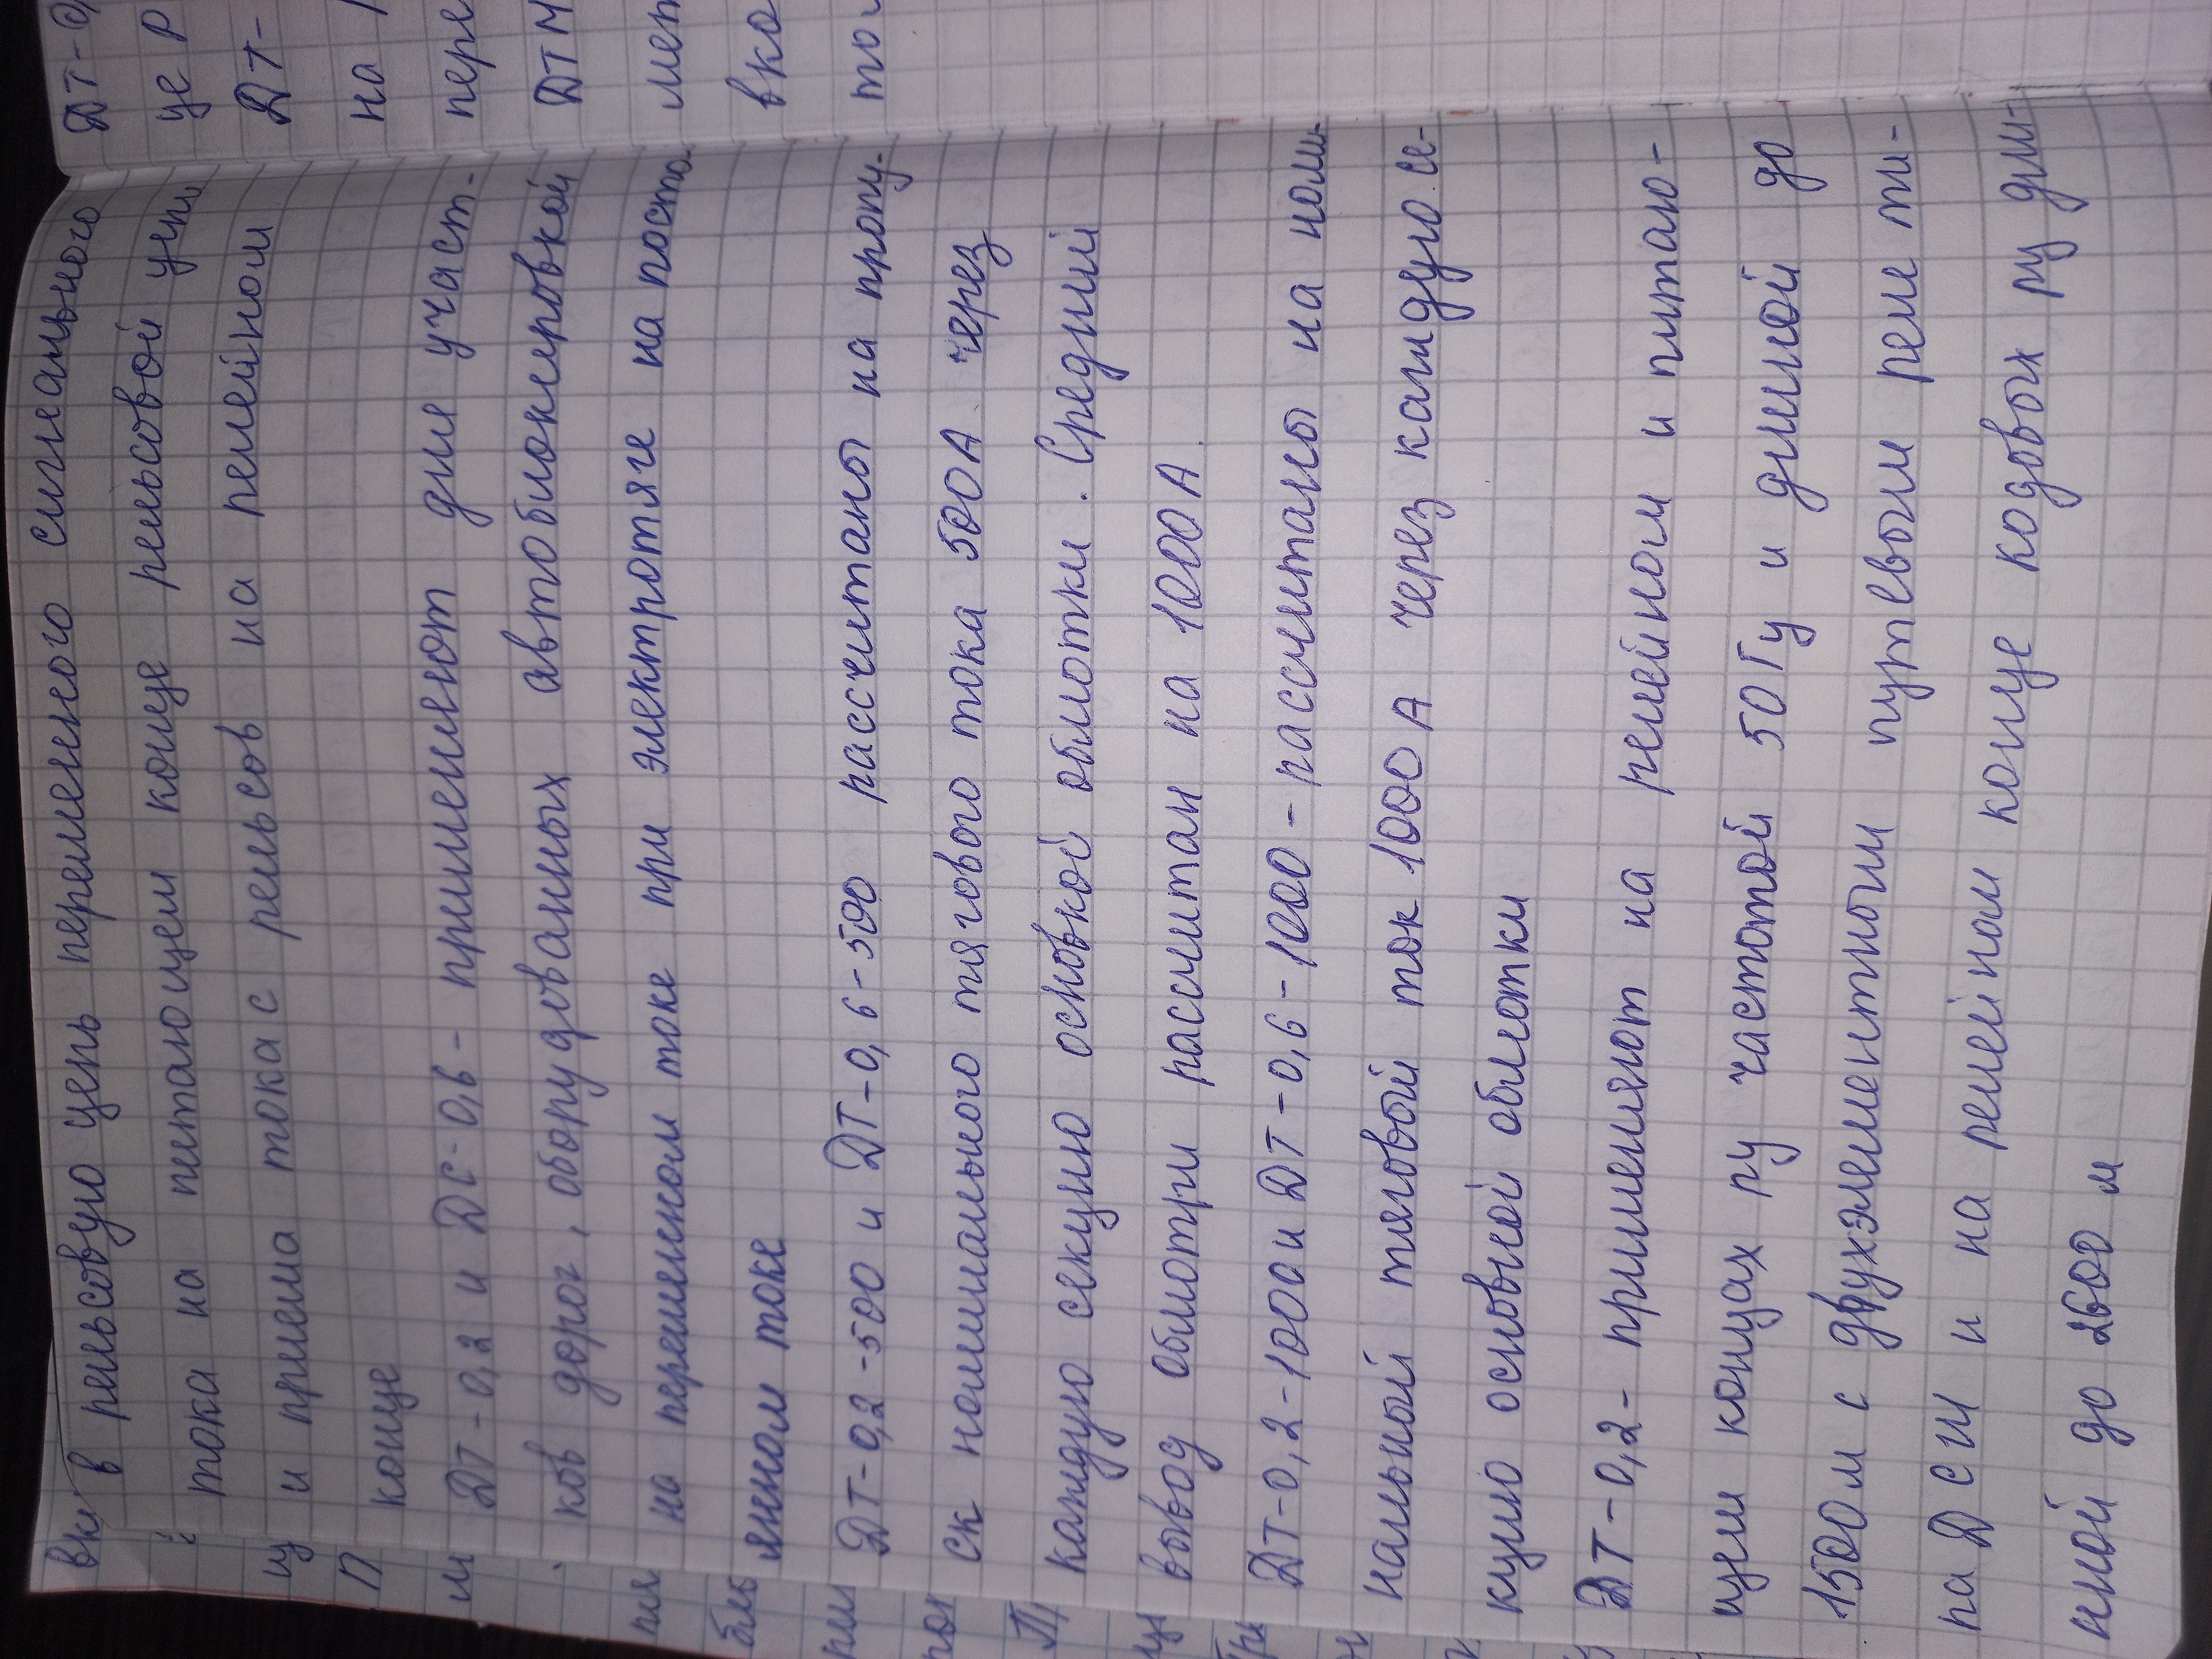 в рельсовую цепь переменного сигнального
тока на питающем конце рельсовой цепи
и приема тока с рельсов на релейном
конце
ДТ-0,2 и ДС-0,6 - применяют для участ-
ков дорог, оборудованных автоблокировкой
на переменном токе при электротяге на посто
янном токе
ДТ-0,2-500 и ДТ-0,6-500 рассчитаны на пропу-
ск номинального тягового тока 500А через
каждую секцию основной обмотки. Средний
вывод обмотри рассчитан на 1000А
ДТ-0,2-1000 и ДТ-0,6-1000 - рассчитаны на номи-
нальный тяговый ток 1000 А через каждую се-
кцию основной обмотки
ДТ-0,2- применяют на релейном и питаю-
щем концах рц частотой 50Гц и длиной до
1500м с двухэлементным путевым реле ти-
па ДСШ и на релейном конце кодовых рц дли-
ной до 2600 м
ДТ-0
це р
ДТ-
на
пере
ДТМ
мет
вко
то